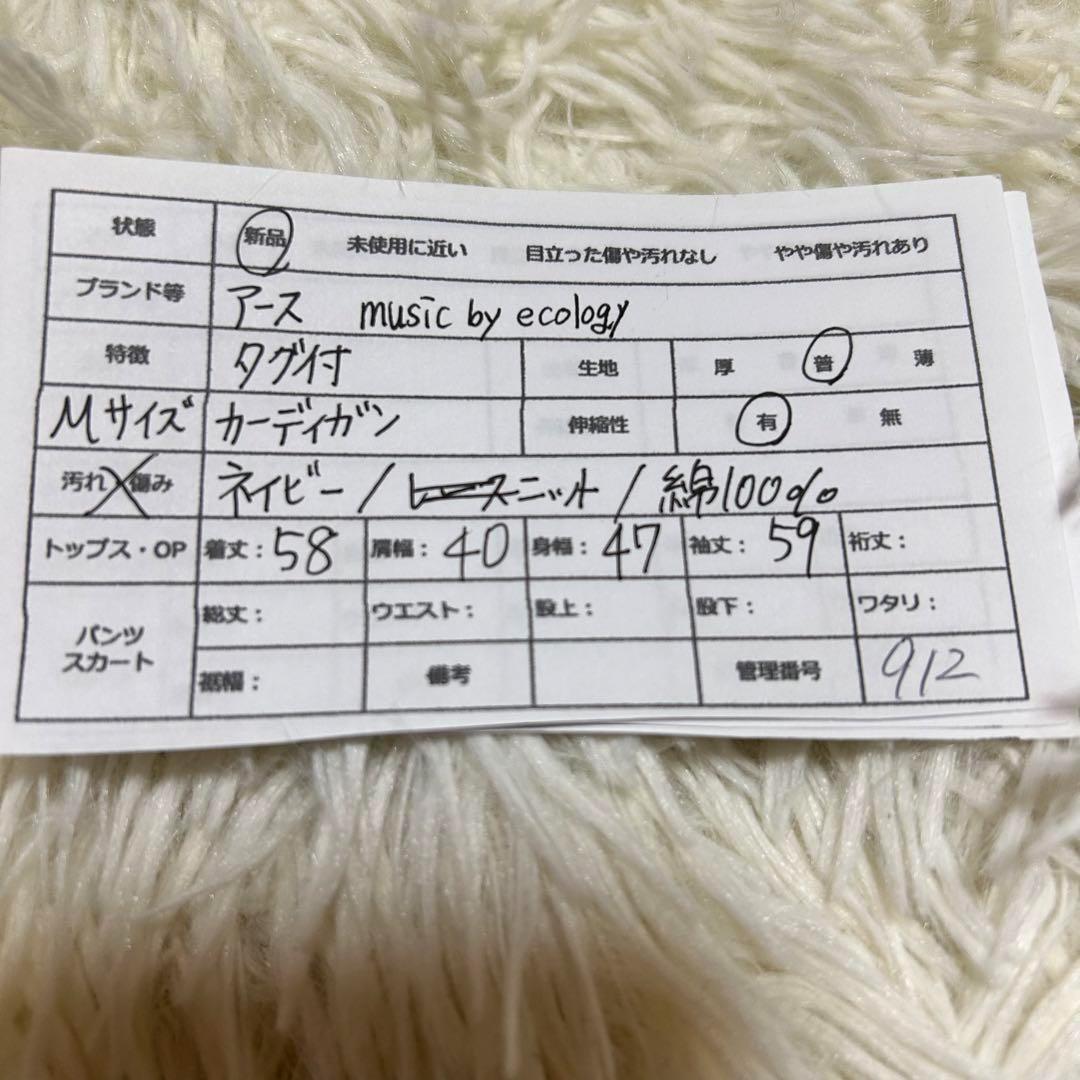 状態 新品 未使用に近い 目立った傷や汚れなし やや傷や汚れあり
ブランド等 アース music by ecology
特徴 タグ付 生地 厚 普 薄
Mサイズ カーディガン 伸縮性 有 無
汚れ 傷み ネイビー / レースニット / 綿100%
トップス・OP 着丈: 58 肩幅: 40 身幅: 47 袖丈: 59 裄丈:
パンツ スカート 総丈: ウエスト: 股上: 股下: ワタリ:
裾幅: 備考 管理番号 912